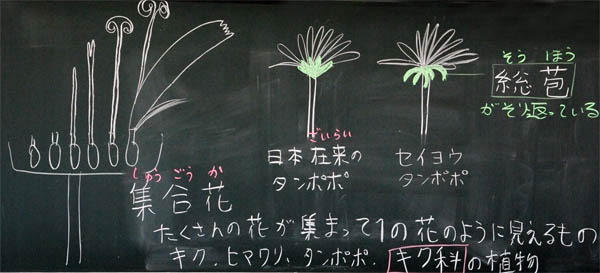 そう ほう
総苞
がそり返っている
ざいらい
日本在来の
タンポポ
セイヨウ
タンポポ
しゅうごうか
集合花
たくさんの花が集まって1の花のように見えるもの
キク、ヒマワリ、タンポポ、キク科の植物